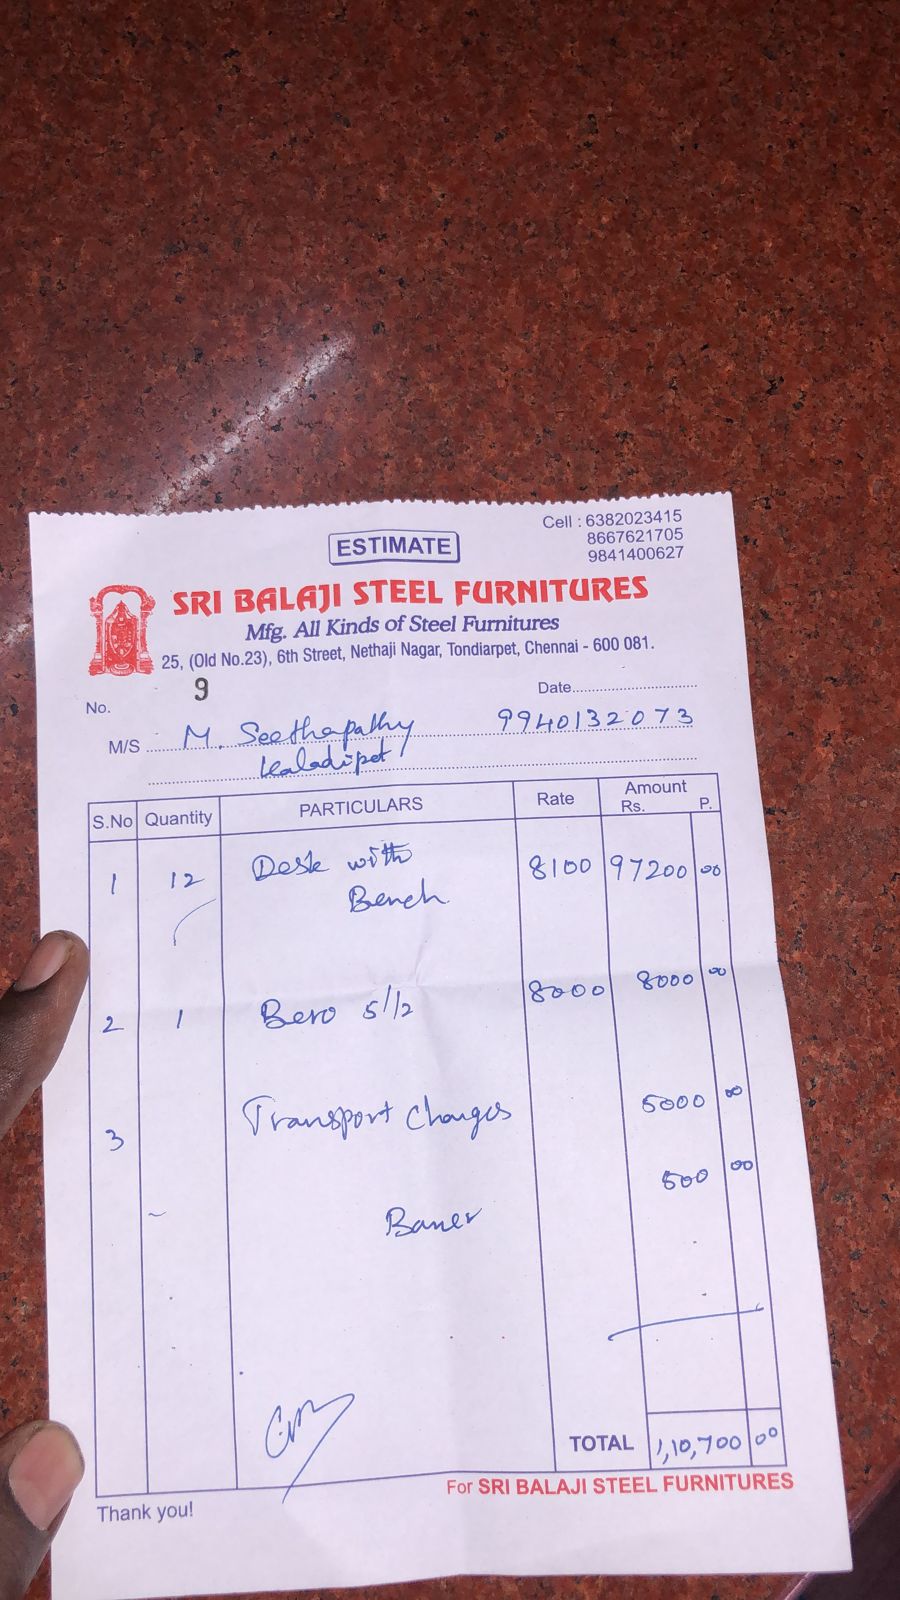 ESTIMATE
Cell : 6382023415
8667621705
9841400627
SRI BALAJI STEEL FURNITURES
Mfg. All Kinds of Steel Furnitures
25, (Old No.23), 6th Street, Nethaji Nagar, Tondiarpet, Chennai - 600 081.
No. 9 Date
M/S M. Seethapathy 9940132073
Kaladipet
S.No Quantity PARTICULARS Rate Amount Rs. P.
1 12 Desk with 8100 97200 00
Bench
2 1 Bero 5 1/2 8000 8000 00
3 Transport Charges 5000 00
Baner 500 00
TOTAL 1,10,700 00
For SRI BALAJI STEEL FURNITURES
Thank you!